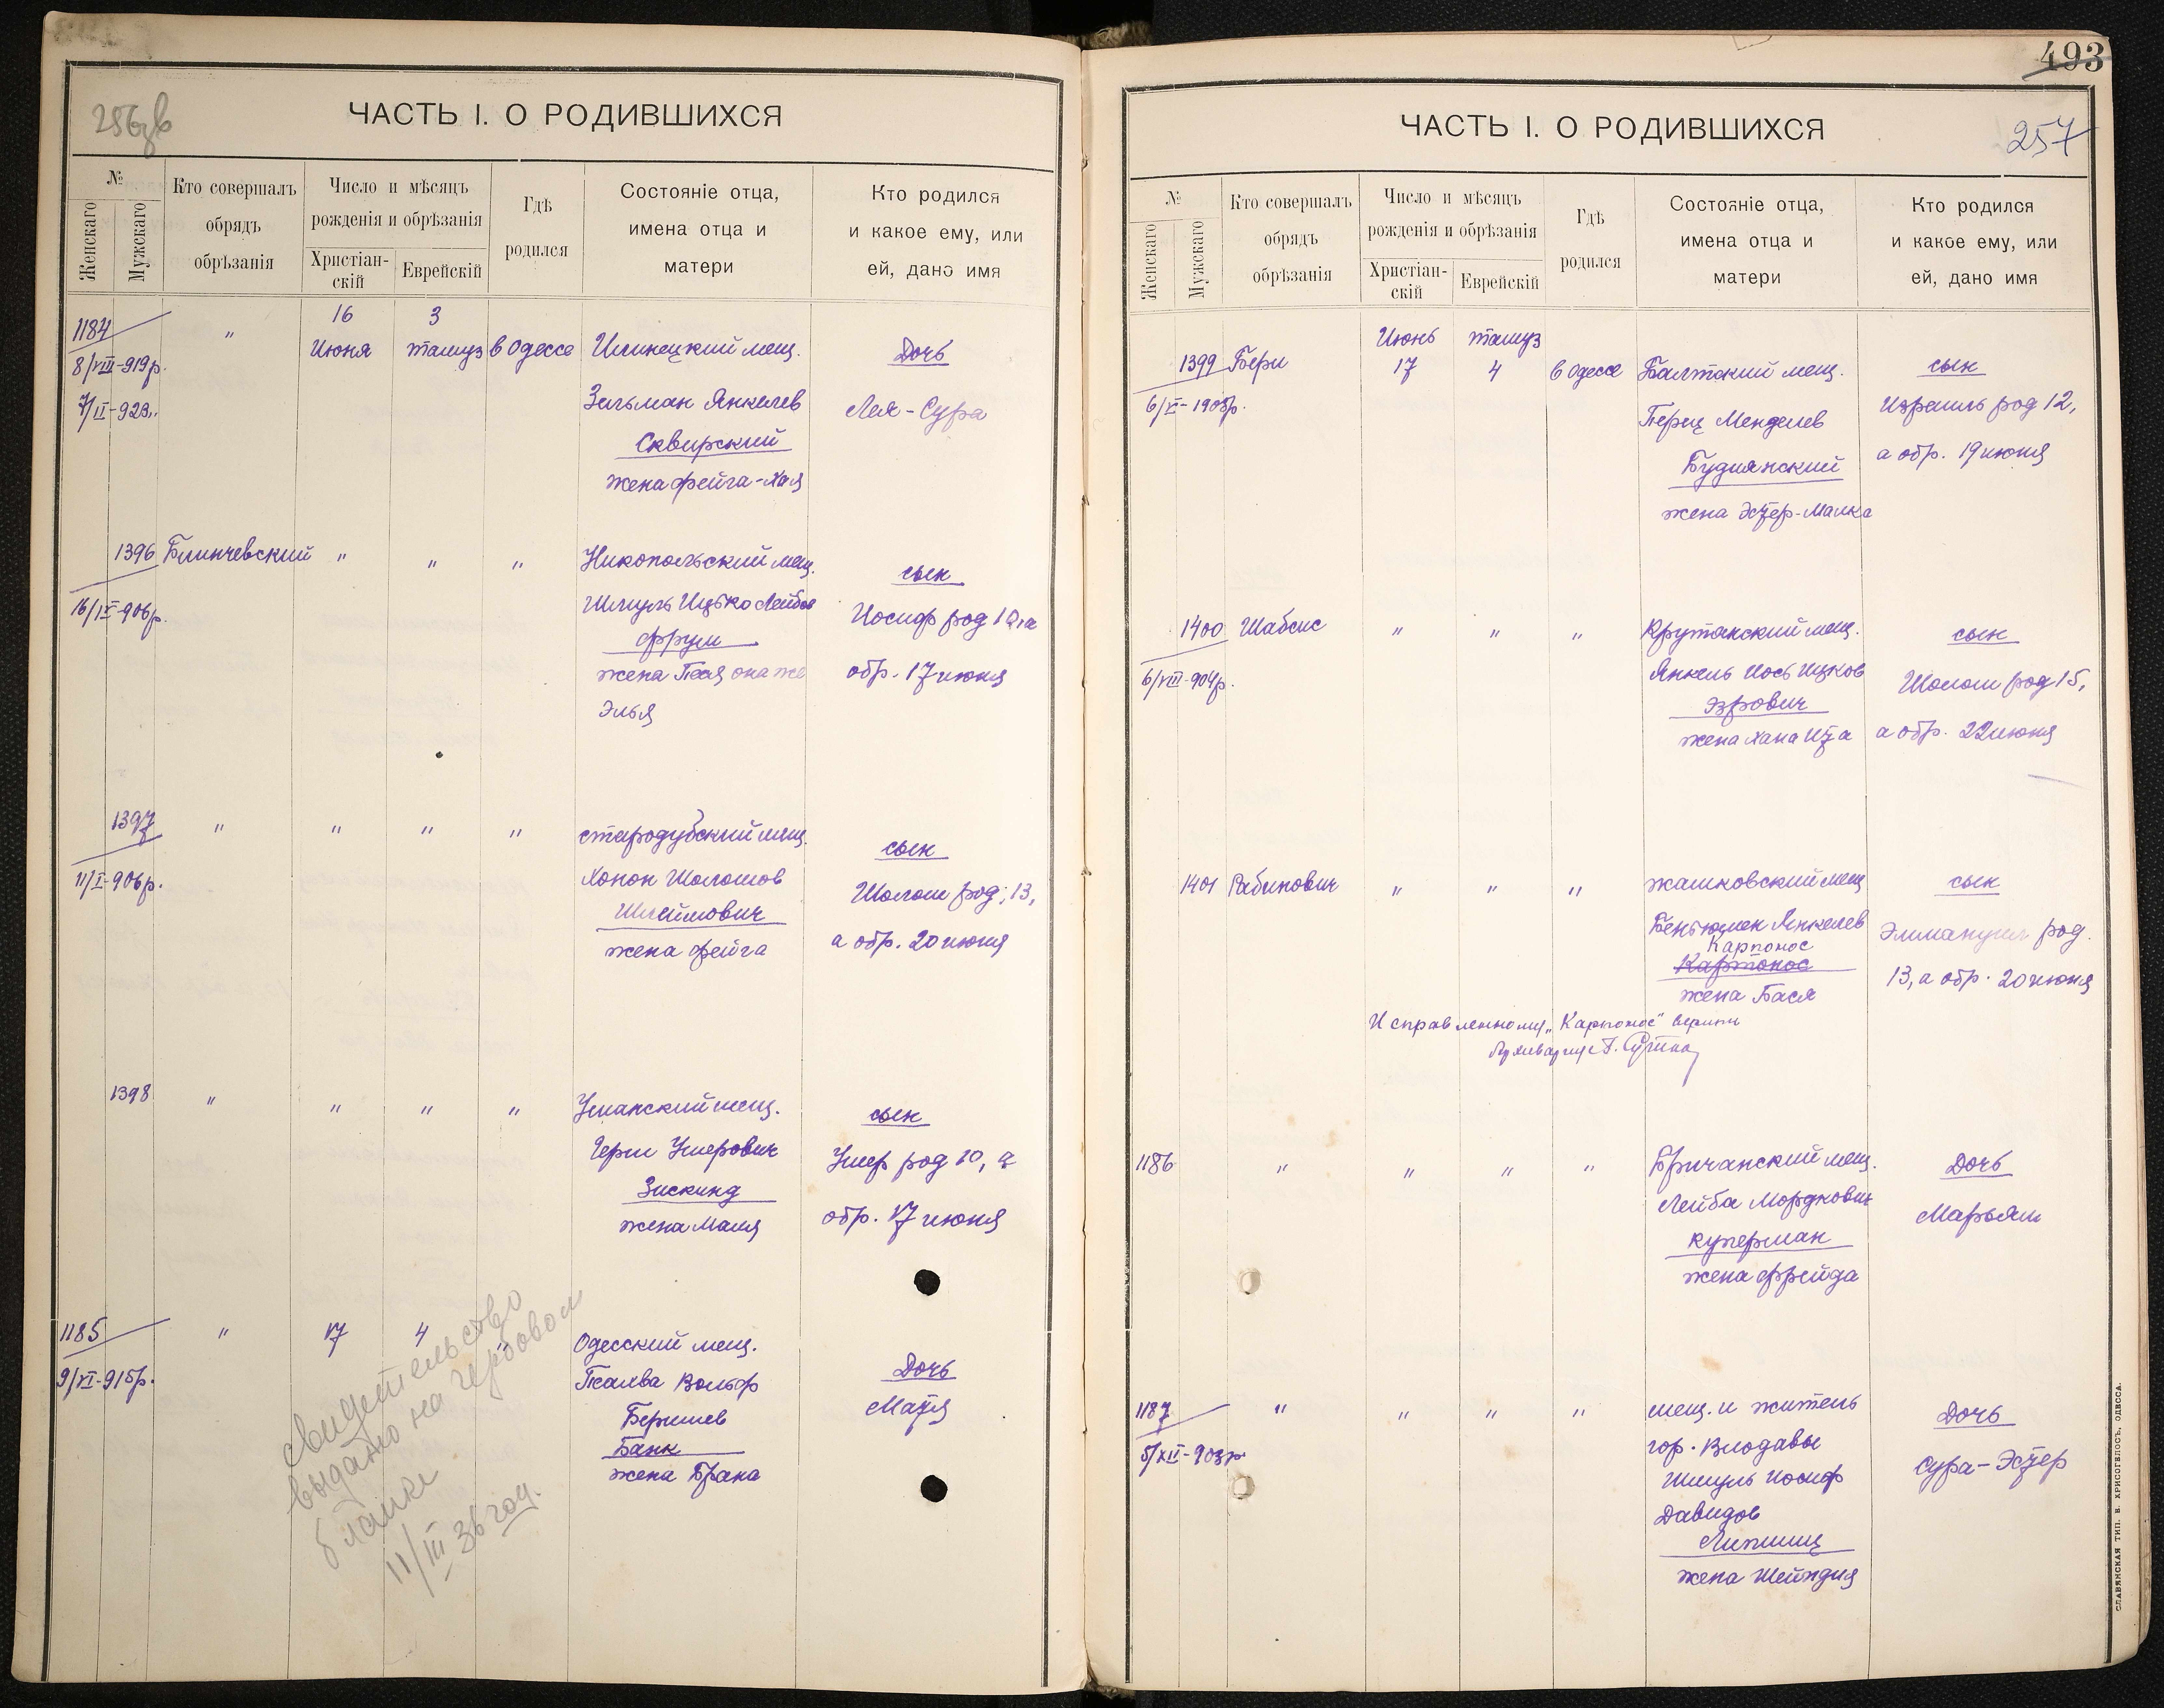 256зв
ЧАСТЬ I. О РОДИВШИХСЯ
№
Женскаго
Мужскаго
Кто совершалъ
обрядъ
обрѣзанія
Число и мѣсяцъ
рожденія и обрѣзанія
Христіан-
скій
Еврейскій
Гдѣ
родился
Состояніе отца,
имена отца и
матери
Кто родился
и какое ему, или
ей, дано имя
16 3
1184 " Июня тамуз в Одессе Илинецкий мещ. Дочь
8/VIII-919р.
7/II-923..
Зельман Янкелев Лея-Сура
Сквирский
жена Фейга-Хая
1396 Блинчевский " " " Никопольский мещ. сын
16/IX-906р.
Шмуль Ицько Лейбов Иосиф род 10, а
Фрум
жена Песя она же обр. 17 июня
Элья
1397 " " " " стародубский мещ. сын
11/I-906р.
Хонон Шоломов Шолом род; 13,
Шлеймович а обр. 20 июня
жена Фейга
1398 " " " " Уманский мещ. сын
Герш Ушерович Ушер род 10, а
Зискинд
жена Маля обр. 17 июня
1185 " 17 4 " Одесский мещ. Дочь
9/VI-915р.
Вольф Матя
Беришев
Банк
жена Брана
свидетельство
выдано на гербовом
бланке
11/III 36 год.
493
257
ЧАСТЬ I. О РОДИВШИХСЯ
№
Женскаго
Мужскаго
Кто совершалъ
обрядъ
обрѣзанія
Число и мѣсяцъ
рожденія и обрѣзанія
Христіан-
скій
Еврейскій
Гдѣ
родился
Состояніе отца,
имена отца и
матери
Кто родился
и какое ему, или
ей, дано имя
Июнь тамуз
1399 Бери 17 4 в Одессе Балтский мещ. сын
Перец Менделев Израиль род 12,
Будиянский а обр. 19 июня
жена Эстер-Малка
1400 Шабсис " " " Крутянский мещ. сын
6/VIII-904р.
Янкель Иось Ицков Шолом род 15,
Эзрович
жена Хана Ита а обр. 22 июня
1401 Рабинович " " " жашковский мещ сын
Беньюмен Янкелев Эммануил род.
Карпонос
Картонос 13, а обр. 20 июня
жена Бася
Исправленному "Карпонос" верить
1186 " " " " Бричанский мещ. Дочь
Лейба Мордкович Марьям
Куперман
жена Фрейда
1187 " " " " мещ. и житель Дочь
5/XII-903р.
гор. Влодавы Сура-Эстер
Шмуль Иосиф
Давидов
Липшиц
жена Шейндля
СЛАВЯНСКАЯ ТИП. Е. ХРИСОГЕЛОСЪ, ОДЕССА.